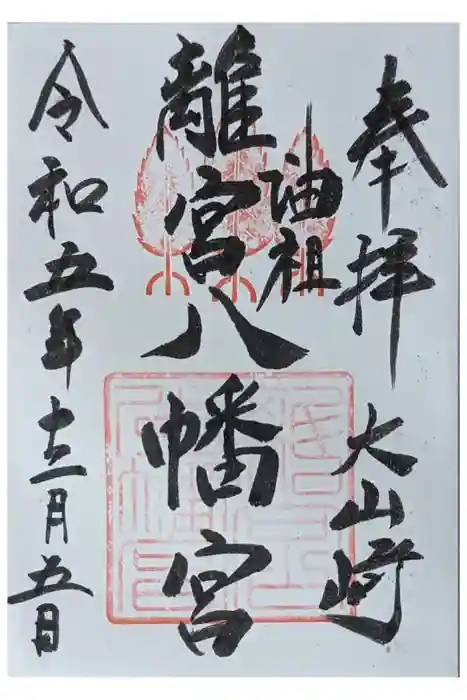 奉拝 大山﨑
油祖
離宮八幡宮
令和五年十二月五日